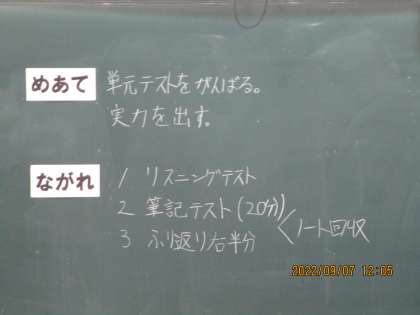 めあて 単元テストをがんばる。
実力を出す。
ながれ 1 リスニングテスト
2 筆記テスト(20分)
3 ふり返り右半分 <ノート回収
2022/09/07 12:05